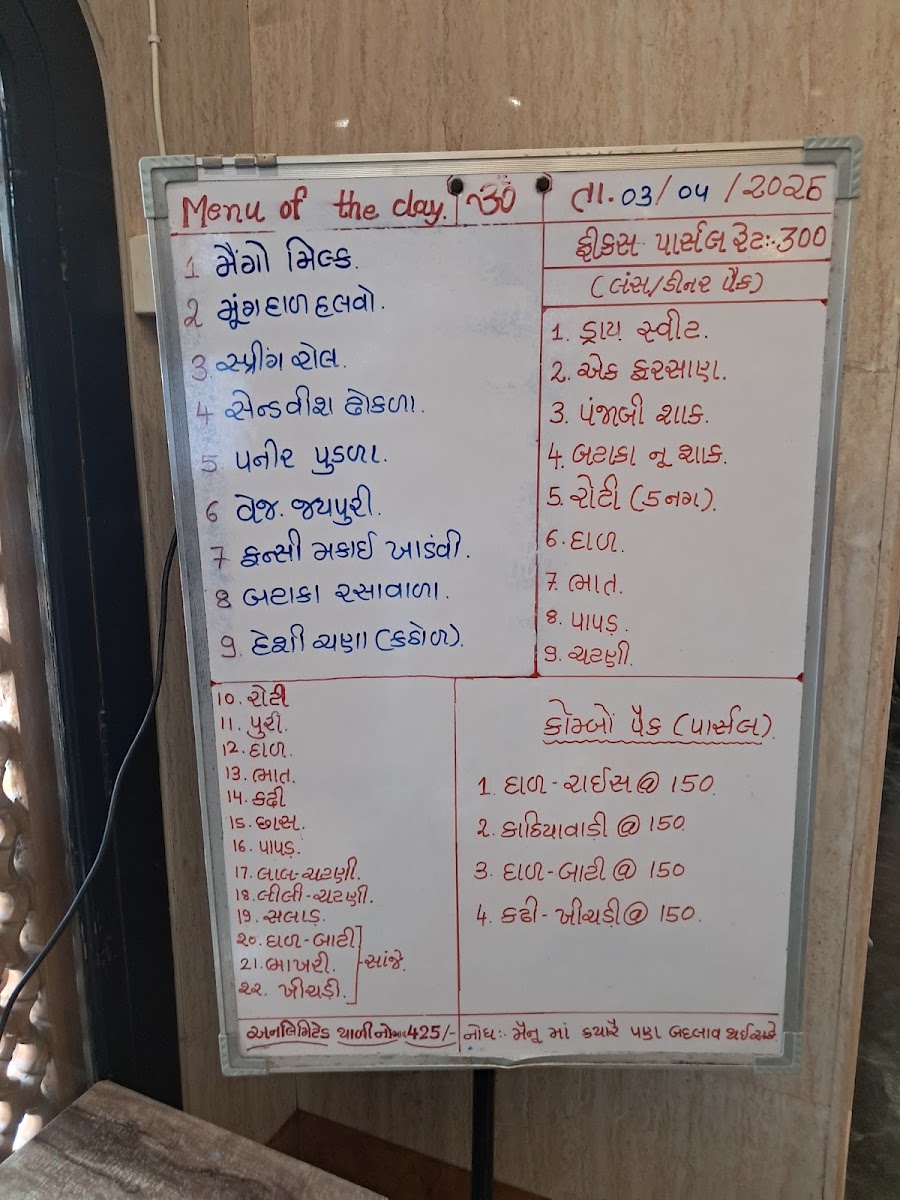 Menu of the day.
ૐ
તા. 03/04/2026
1 મૈંગો મિલ્ક.
2 મૂંગદાળ હલવો.
3. સ્પ્રીંગ રોલ.
4 સેન્ડવીશ ઢોકળા.
5. પનીર પુડળા.
6 વેજ. જયપુરી.
7 ફ્રન્સી મકાઈ ખાડંવી.
8 બટાકા રસાવાળા.
9. દેશી ચણા (કઠોળ).
ફીકસ પાર્સલ રેટ:-300
(લંસ/ડીનર પૈક)
1. ડ્રાય સ્વીટ.
2. એક ફરસાણ.
3. પંજાબી શાક.
4. બટાકા નૂ શાક.
5. રોટી (5 નગ).
6. દાળ.
7. ભાત.
8. પાપડ.
9. ચટણી.
10. રોટી
11. પુરી.
12. દાળ.
13. ભાત.
14. કઢી
15. છાસ.
16. પાપડ.
17. લાલ-ચટણી.
18. લીલી-ચટણી.
19. સલાડ.
૨0. દાળ-બાટી
૨1. ભાખરી. - સાંજે.
૨૨. ખીચડી.
કૉમ્બોં પૈક (પાર્સલ)
1. દાળ-રાઈસ @ 150.
2. કાઠિયાવાડી @ 150
3. દાળ-બાટી @ 150
4. કઢી-ખીચડી @ 150.
અનલિમિટેડ થાળી નો 425/-
નોધ:- મૈનૂ માં કયારૈ પણ બદલાવ થઈ સકે